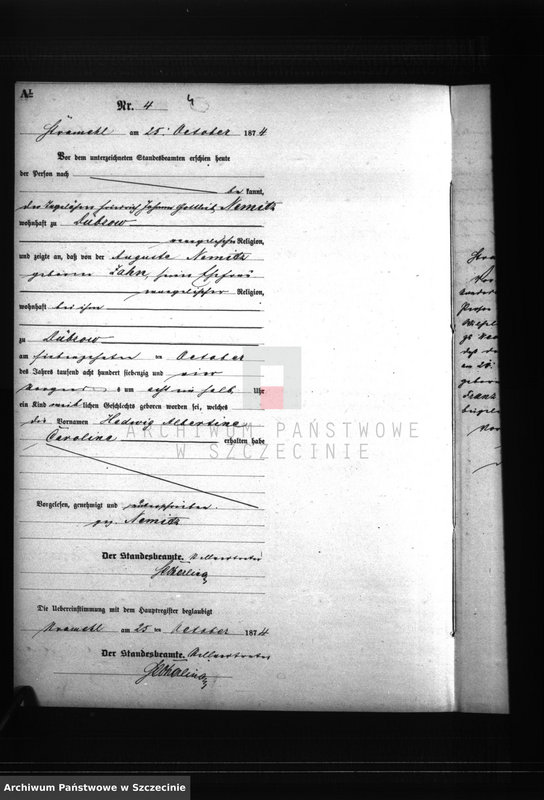 A.
Nr. 4
am 25. October 1874
Vor dem unterzeichneten Standesbeamten erschien heute
der Person nach
be kannt,
der Friedrich Johann Gottlieb Nemitz
wohnhaft zu Dübsow
evangelischer Religion,
und zeigte an, daß von der Auguste Nemitz
geborene Zahn, seiner Ehefrau
evangelischer Religion,
wohnhaft bei ihm
zu Dübsow
am siebenzehnten October
des Jahres tausend acht hundert siebenzig und vier
Morgens um acht ein halb Uhr
ein Kind weib lichen Geschlechts geboren worden sei, welches
die Vornamen Hedwig Albertine
Carolina erhalten habe
ARCHIWUM PAŃSTWOWE
W SZCZECINIE
Vorgelesen, genehmigt und unterschrieben
gez. Nemitz
Der Standesbeamte.
Die Uebereinstimmung mit dem Hauptregister beglaubigt
am 25 ten October 1874
Der Standesbeamte.
Archiwum Państwowe w Szczecinie